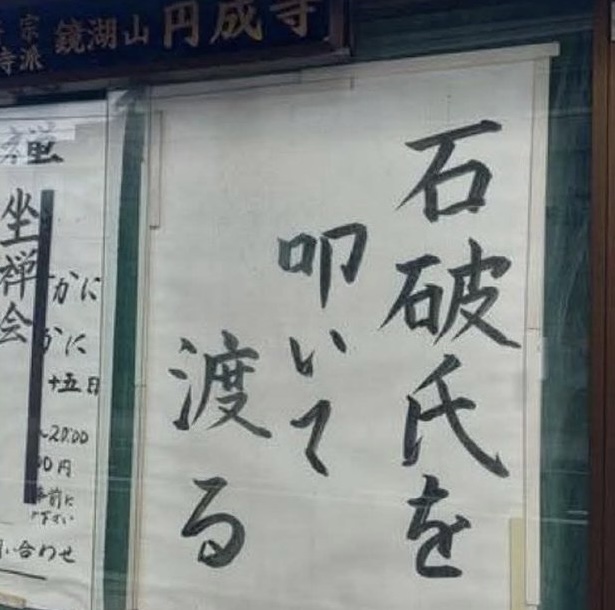 宗
寺派
鏡湖山 円成寺
石破氏を
叩いて
渡る
禅
坐禅会
かに
かに
十五日
~20:00
00円
事前に
下さい
い合わせ